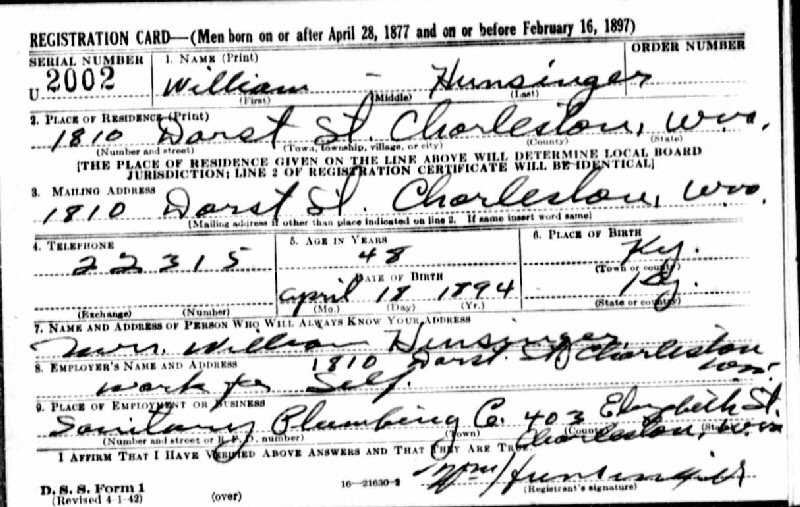 REGISTRATION CARD—(Men born on or after April 28, 1877 and on or before February 16, 1897)
SERIAL NUMBER 1. NAME (Print) ORDER NUMBER
U 2002 William – Hunsinger
(First) (Middle) (Last)
2. PLACE OF RESIDENCE (Print)
1810 Dorst St. Charleston, W.Va.
(Number and street) (Town, township, village, or city) (County) (State)
[THE PLACE OF RESIDENCE GIVEN ON THE LINE ABOVE WILL DETERMINE LOCAL BOARD
JURISDICTION; LINE 2 OF REGISTRATION CERTIFICATE WILL BE IDENTICAL]
3. MAILING ADDRESS
1810 Dorst St. Charleston, W.Va.
(Mailing address if other than place indicated on line 2. If same insert word same)
4. TELEPHONE 5. AGE IN YEARS 6. PLACE OF BIRTH
22315 48 Ky.
(Town or county)
DATE OF BIRTH
April 18 1894 Ky.
(Exchange) (Number) (Mo.) (Day) (Yr.) (State or country)
7. NAME AND ADDRESS OF PERSON WHO WILL ALWAYS KNOW YOUR ADDRESS
Mrs. William Hunsinger
1810 Dorst St. Charleston
8. EMPLOYER'S NAME AND ADDRESS
Work for Self.
9. PLACE OF EMPLOYMENT OR BUSINESS
Sanitary Plumbing Co. 403 Elizabeth St.
(Number and street or R. F. D. number) (Town) (County) (State)
Charleston, W.Va
I AFFIRM THAT I HAVE VERIFIED ABOVE ANSWERS AND THAT THEY ARE TRUE.
Wm Hunsinger
D. S. S. Form 1 16—21630-2 (Registrant's signature)
(Revised 4-1-42) (over)